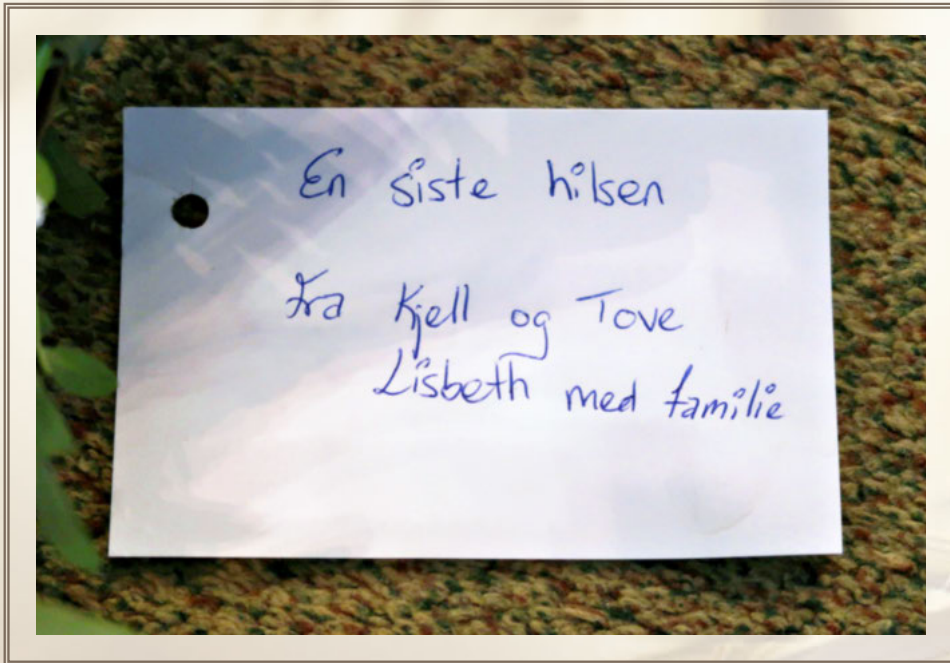 En siste hilsen
fra Kjell og Tove
Lisbeth med familie